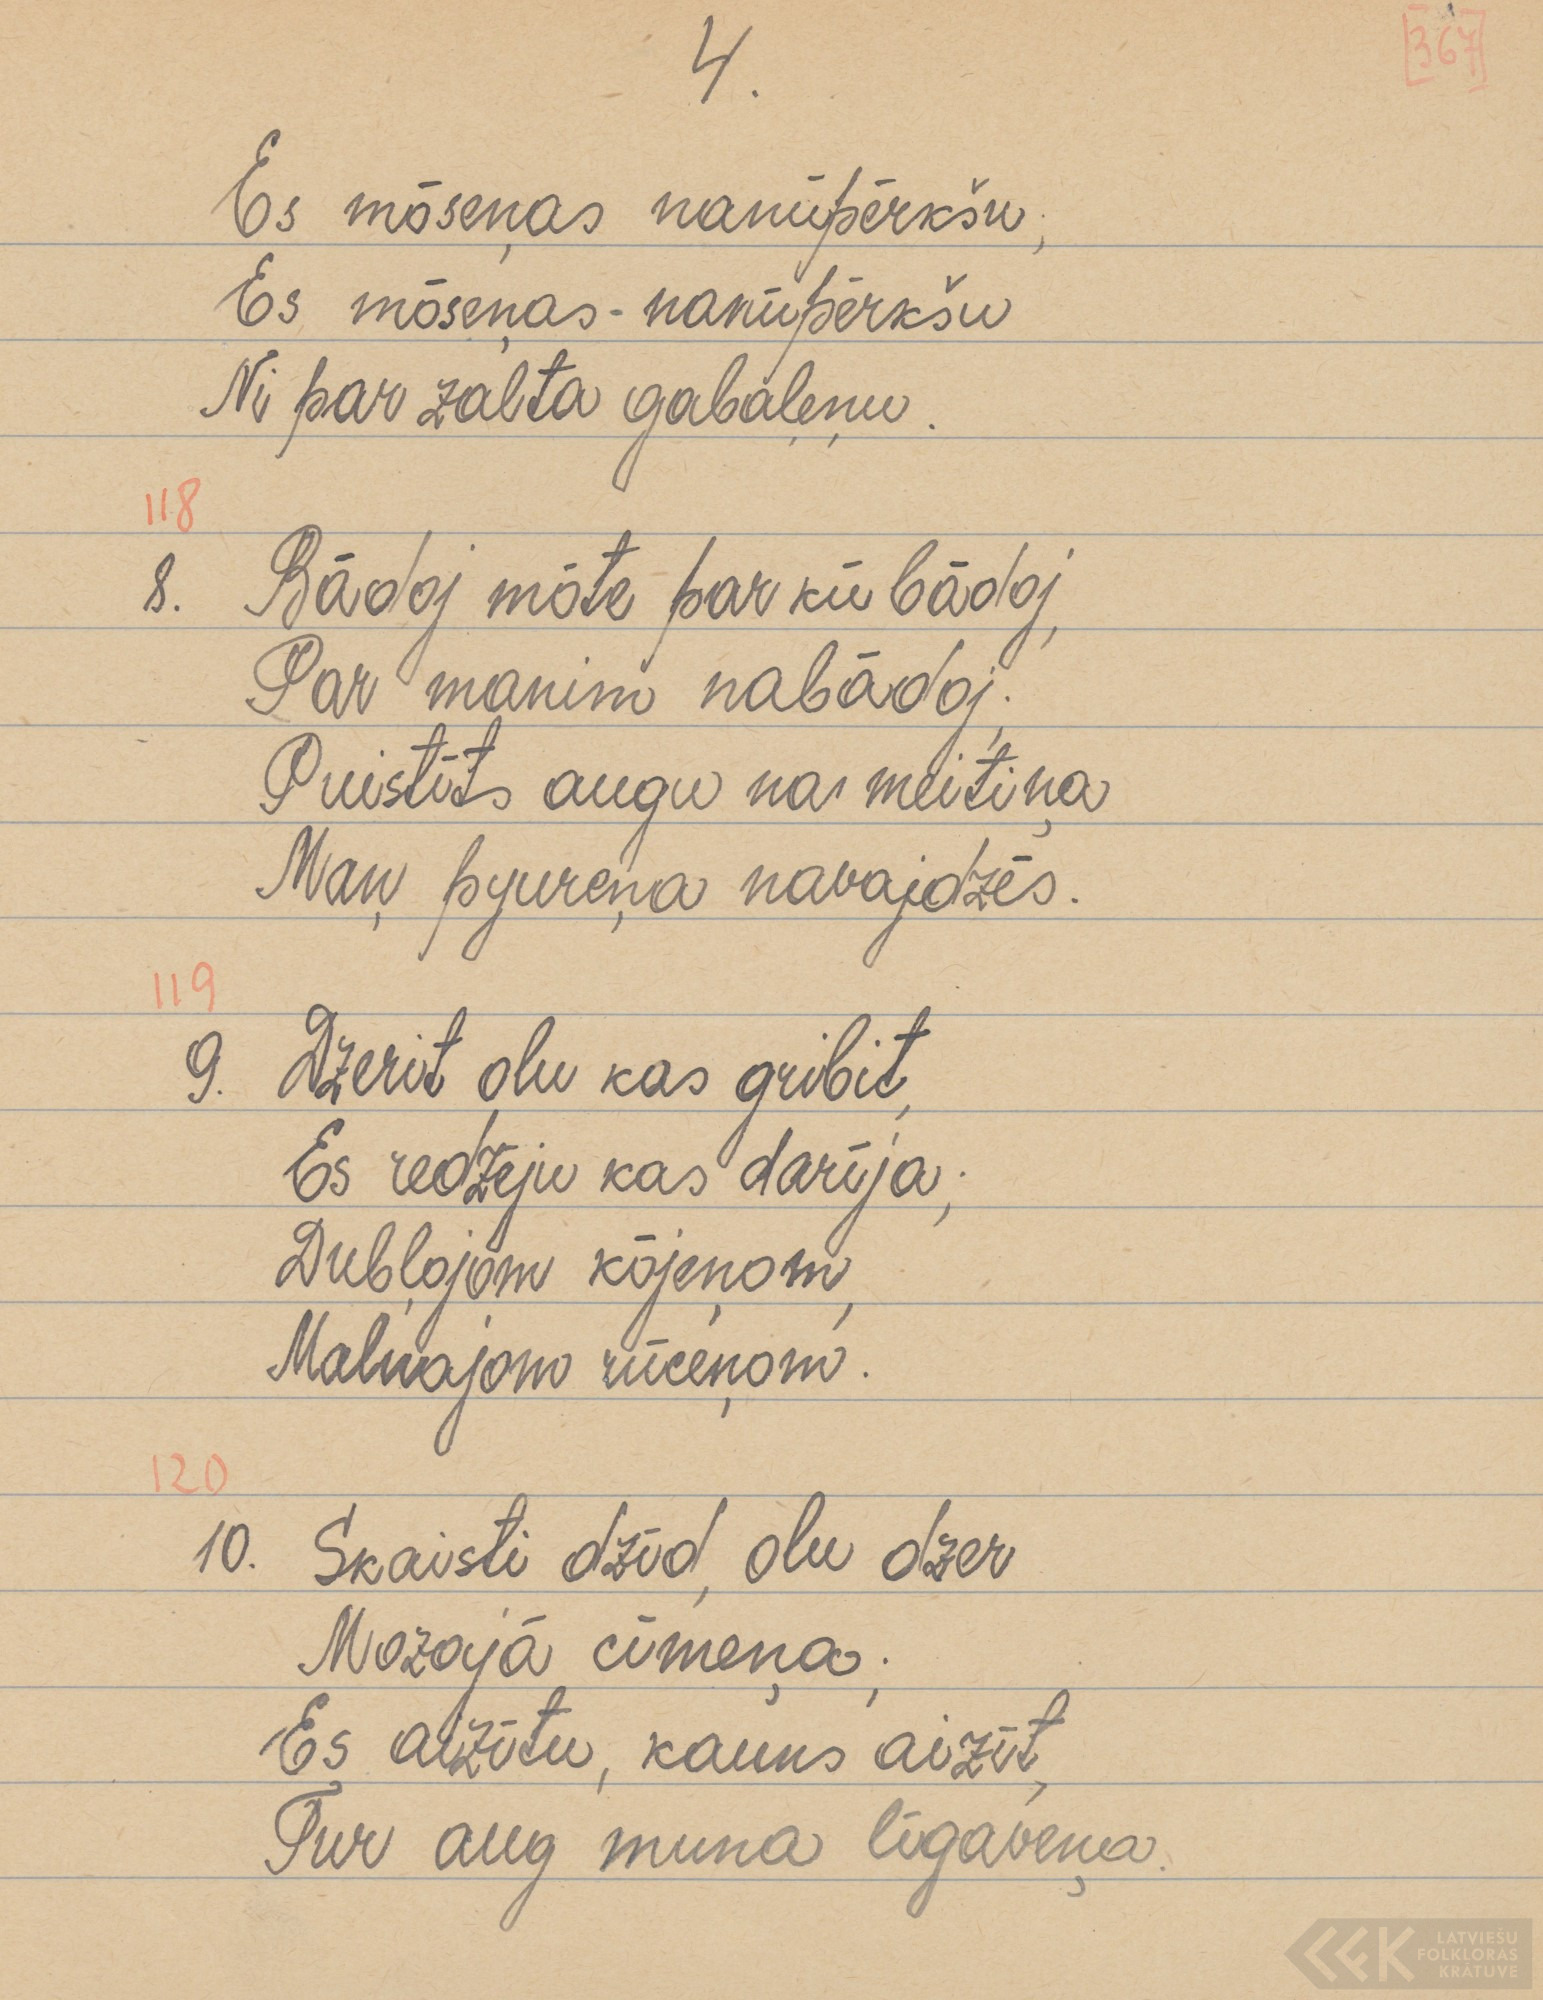 4.
[367]
Es mōseņas nanūpērkšu,
Es mōseņas - nanūpērkšu
Ni par zalta gabaļeņu.
118
8. Bādoj mōte par kū bādoj,
Par manim nabādoj.
Puistīts augu na meitiņa
Maņ pyureņa navajdzēs.
119
9. Dzerit olu kas gribit,
Es redzēju kas darīja,
Dubļojom kōjeņom,
Malnajom rūceņom.
120
10. Skaisti dzīd, olu dzer
Mozajā cīmeņa,
Es aizītu, kauns aizīt,
Tur aug muna līgaveņa.
LATVIEŠU
FOLKLORAS
KRĀTUVE